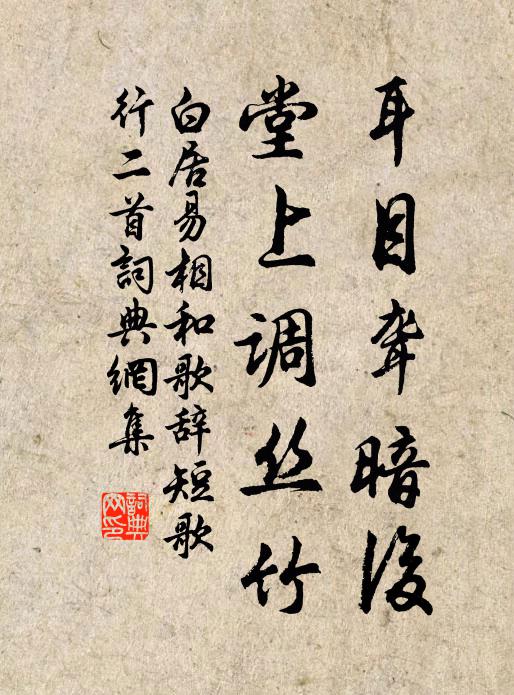 耳目聋暗后
堂上调丝竹
白居易相和歌辞短歌
行二首詞典網集
詞典网印